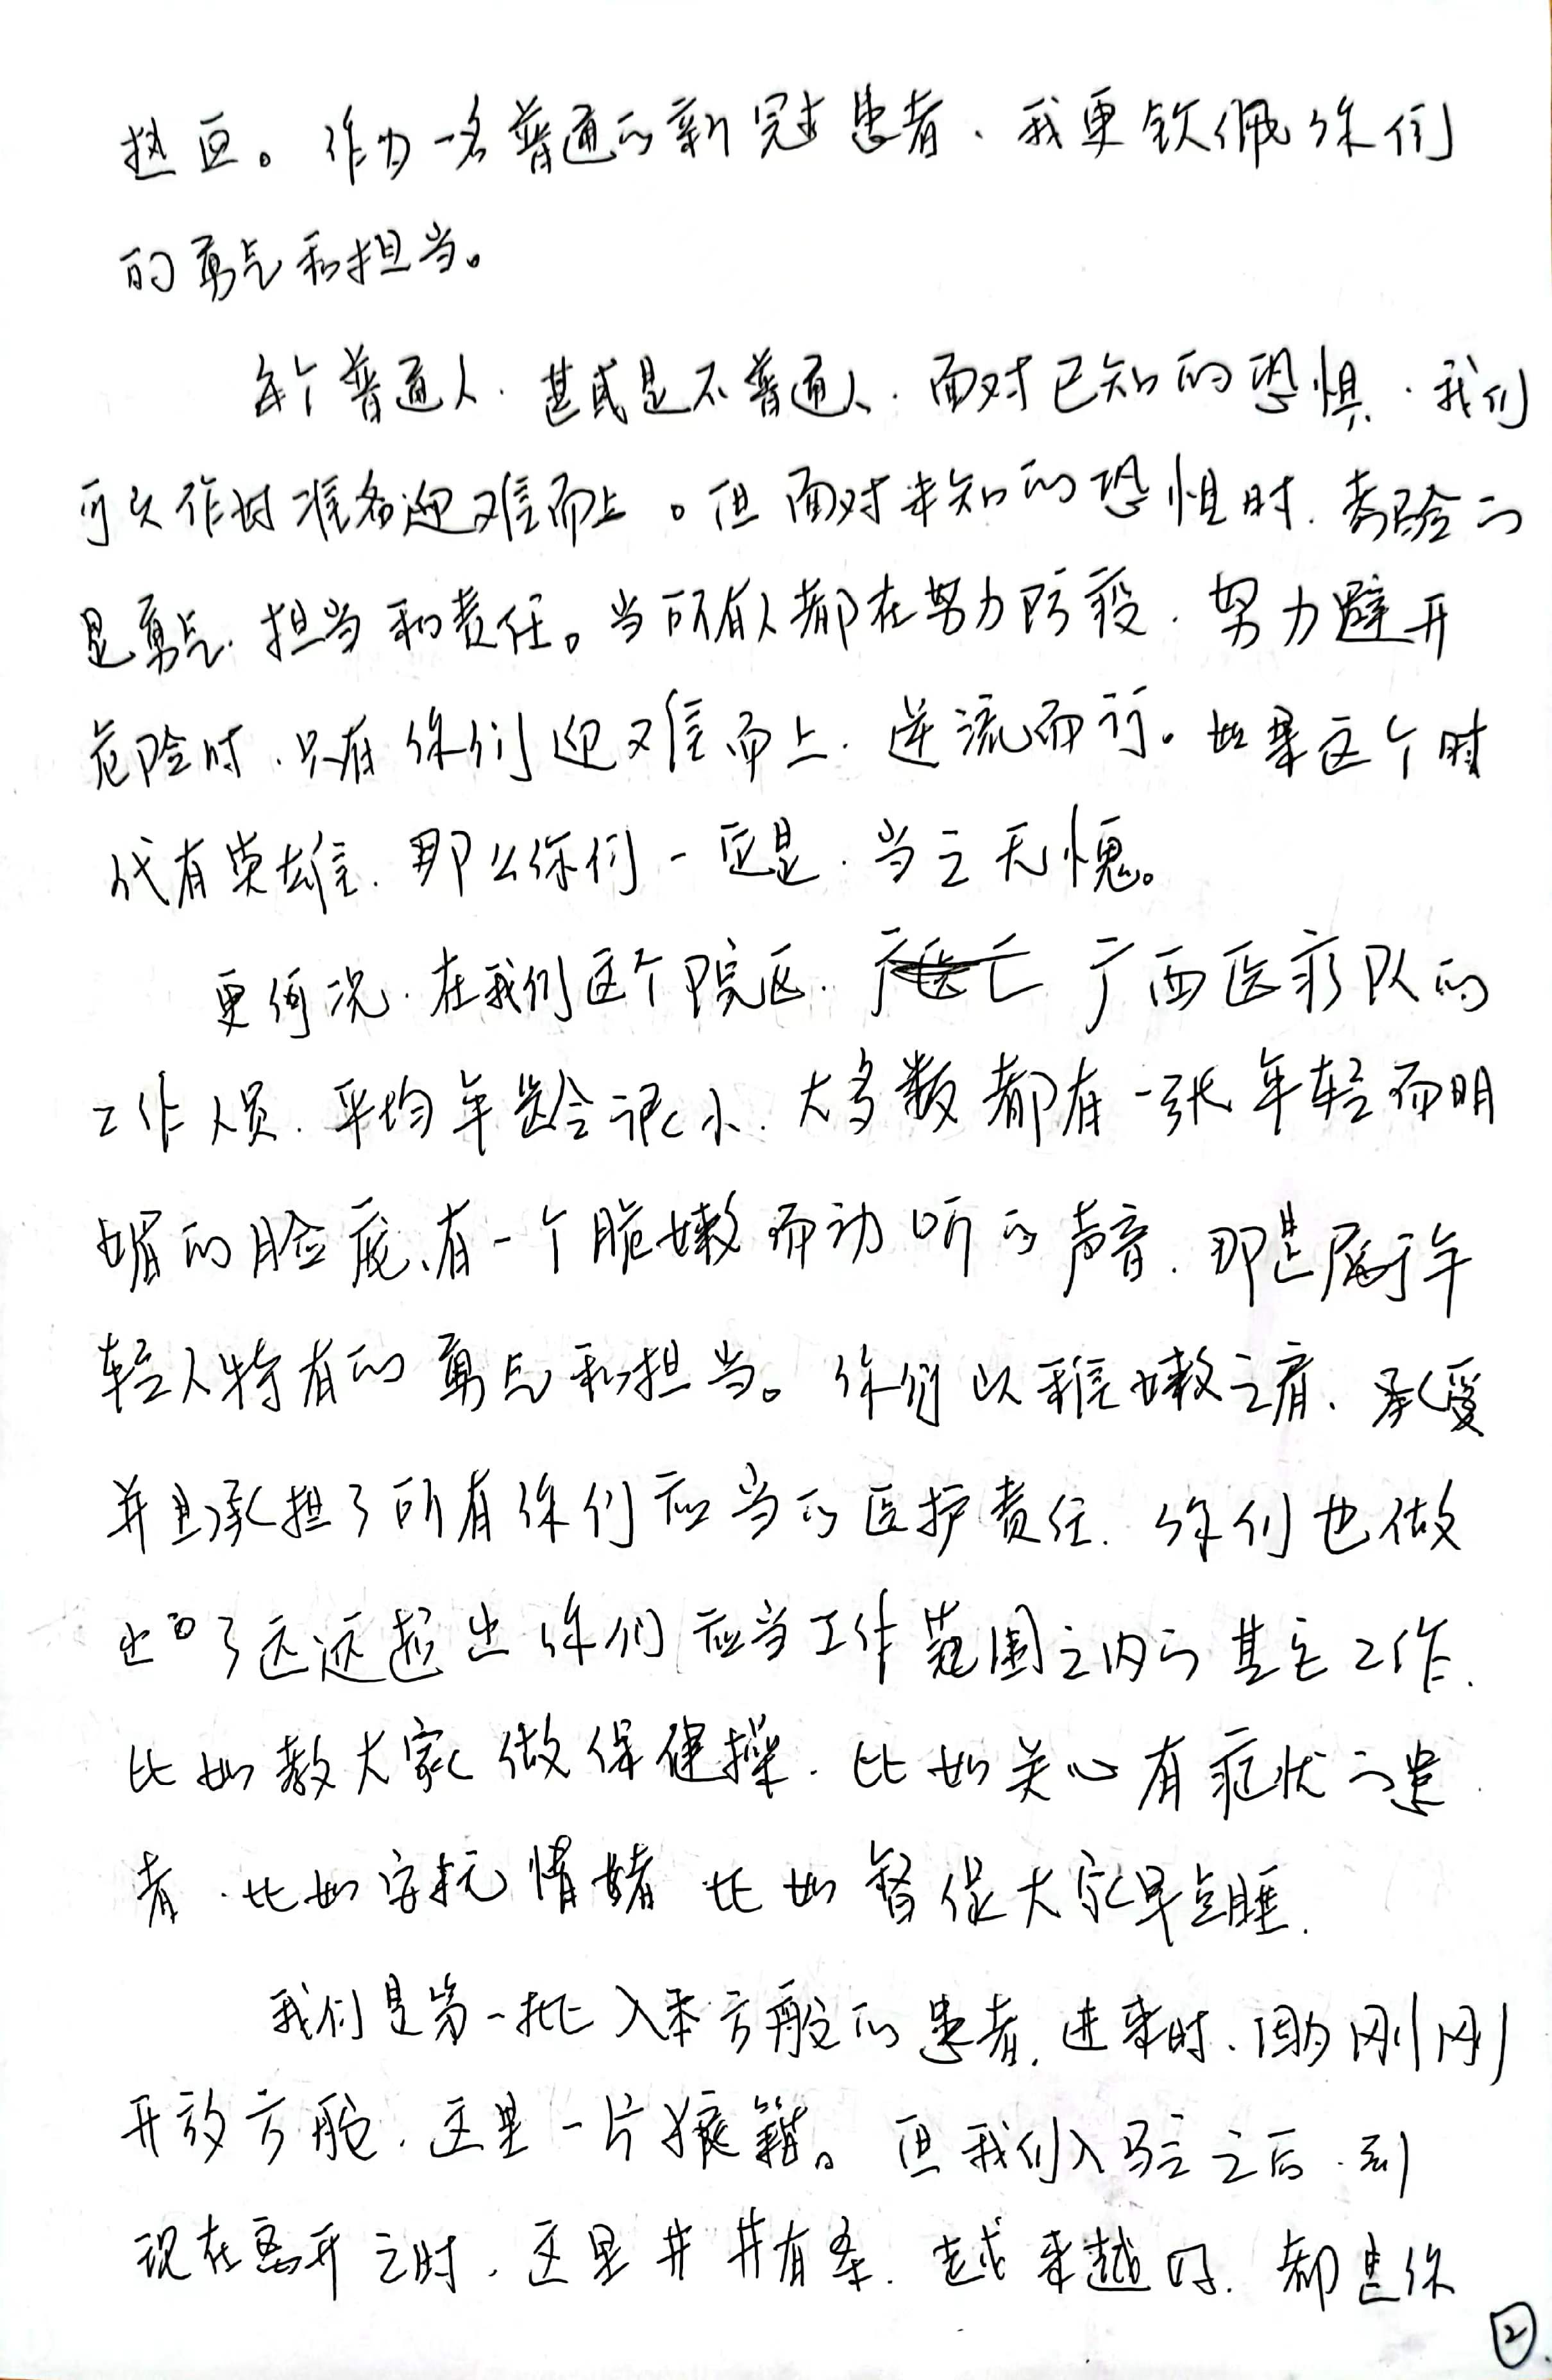 热血。作为一名普通的新冠患者、我更钦佩你们
的勇气和担当。
每个普通人.甚或是不普通人.面对已知的恐惧.我们
可以作好准备迎难而上。但面对未知的恐惧时.考验的
是勇气.担当和责任。当所有人都在努力防疫.努力避开
危险时.只有你们迎难而上.逆流而行。如果这个时
代有英雄.那么你们一定是.当之无愧。
更何况.在我们这个院区.广西医疗队的
工作人员.平均年龄很小.大多数都有一张年轻而明
媚的脸庞、有一个脆嫩而动听的声音.那是属于年
轻人特有的勇气和担当。你们以稚嫩之肩、承受
并且承担了所有你们应当的医护责任.你们也做
出了远远超出你们应当工作范围之内的其它工作.
比如教大家做保健操.比如关心有症状的患
者.比如安抚情绪 比如督促大家早点睡.
我们是第一批入本方舱的患者.进来时、因为刚刚
开放方舱.这里一片狼籍。但我们入驻之后.到
现在离开之时.这里井井有条.越来越好.都是你
②